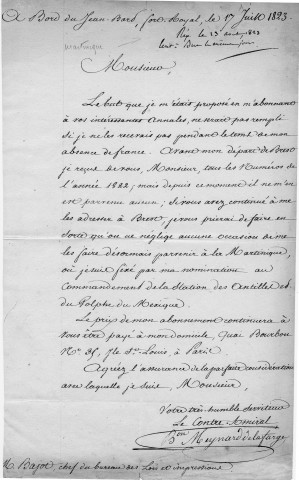 A Bord du Jean-Bard, fort Royal, le 17 Juillet 1823.
martinique
Rep le 13 aout 1823
Monsieur,
Le but que je m'étais proposé en m'abonnant
à vos intéressantes Annales, ne serait pas rempli
si je ne les recevais pas pendant le tems de mon
absence de france. Avant mon départ de Brest
je reçus de vous, Monsieur, tous les Numéros de
l'année 1822; mais depuis ce moment il ne m'en
est parvenu aucun; si vous avez continué à me
les adresser à Brest, je vous prierai de faire en
sorte qu'on ne néglige aucune occasion de me
les faire désormais parvenir à la Martinique,
où je suis fixé par ma nomination au
Commandement de la Station des Antilles et
du Golphe du Mexique.
Le prix de mon abonnement continuera à
vous être payé à mon domicile, Quai Bourbon
No. 35, île St. Louis, à Paris
Agréez l'assurance de la parfaite considération
avec laquelle je suis, Monsieur,
Votre très-humble Serviteur
Le Contre Amiral
Bon Meynard de la farge
M. Bajot, chef du bureau des Lois et impressions